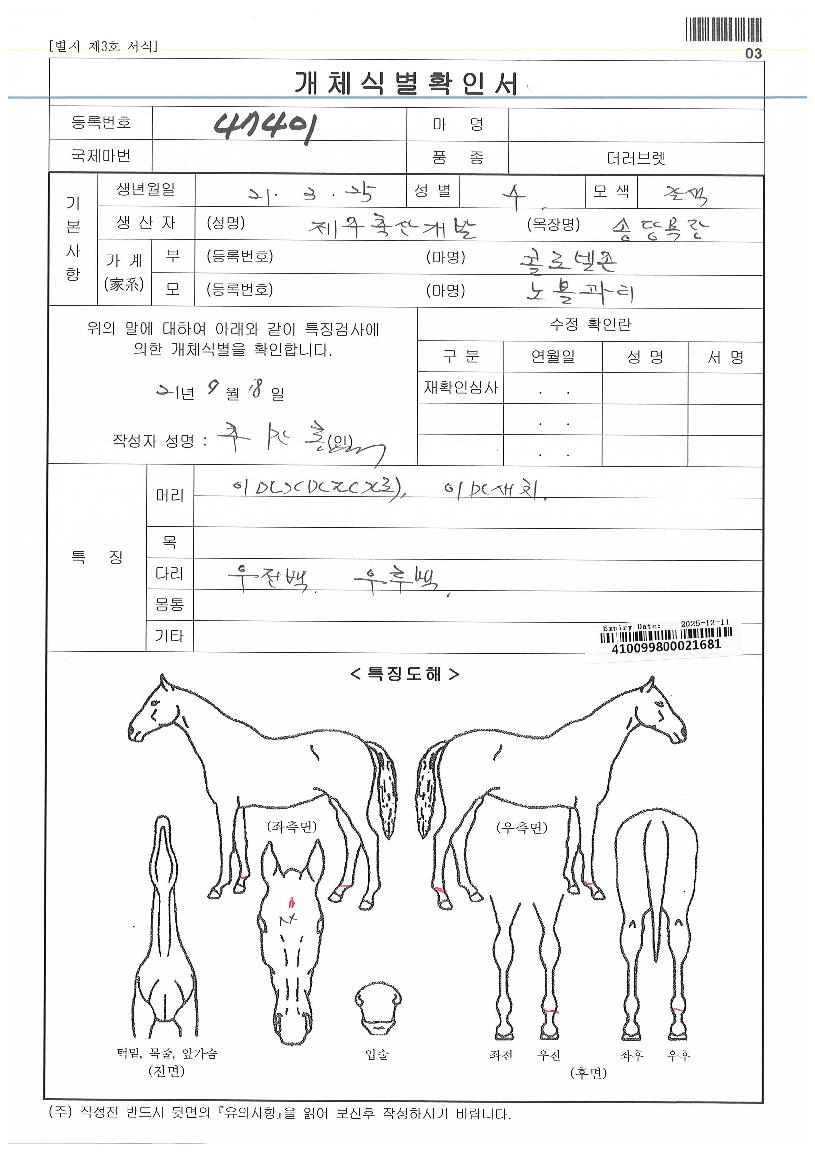 [별지 제3호 서식]
03
개체식별확인서
등록번호 47401 마 명
국제마번 품 종 더러브렛
기본사항
생년월일 21. 3. 25 성 별 수 모 색
생 산 자 (성명) 제주축산개발 (목장명) 송당목장
가 계 (家系) 부 (등록번호) (마명) 콜로넬존
모 (등록번호) (마명) 노블파티
위의 말에 대하여 아래와 같이 특징검사에
의한 개체식별을 확인합니다.
21년 9월 18일
작성자 성명 : (인)
수정 확인란
구 분 연월일 성 명 서 명
재확인심사 . .
. .
. .
특 징
머리
목
다리 우전백. 우후백.
몸통
기타
Expiry Date: 2025-12-11
410099800021681
< 특징도해 >
(좌측면) (우측면)
턱밑, 목줄, 앞가슴 입술 좌전 우전 좌후 우후
(전면) (후면)
(주) 작성전 반드시 뒷면의 『유의사항』을 읽어 보신후 작성하시기 바랍니다.